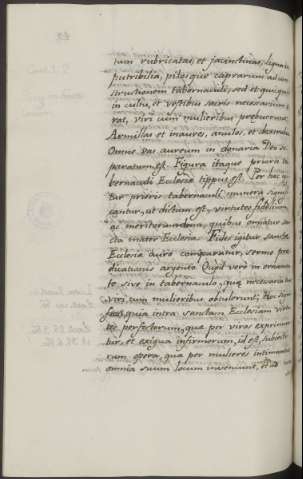 tum rubricatas, et jacinthinas, ligna im
putribilia, pilosque caprarum ad con
structionem tabernaculi, sed et quicquid
in cultu, et vestibus sacris necessarium e
rat, viri cum mulieribus praebuerunt
Armillas et inaures, anulos, et dextralia
Omne vas aureum in donaria Dei se
paratum est. Figura itaque prioris ta
bernaculi Ecclesiae typus est. Per haec igi
tur prioris tabernaculi munera signifi
cantur, ut dictum est, virtutes fidelium
ac meritorum dona, quibus ornatur san
cta mater Ecclesia. Fides igitur sanctae
Ecclesiae auro comparatur, sermo prae
dicationis argento. Quid vero in ornamen
to sive in tabernaculo, quae necessaria erant
viri cum mulieribus obtulerunt,
quia intra sanctam Ecclesiam virtu
tes perfectorum, quae per viros exprimun
tur, et exigua infirmorum, id est, subiecto
rum opera, quae per mulieres intimantur
omnia suum locum inveniunt, et ad